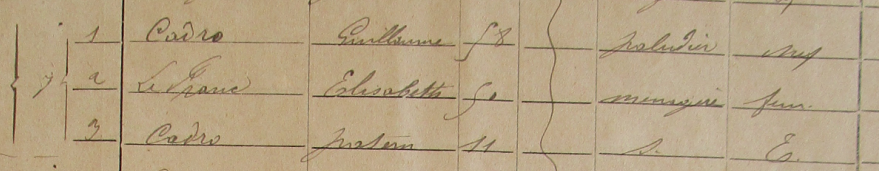 7
1 Cadro Guillaume 58 paludier chef
2 Le Franc Elisabeth 50 menagère fem.
3 Cadro patern 11 s. E.